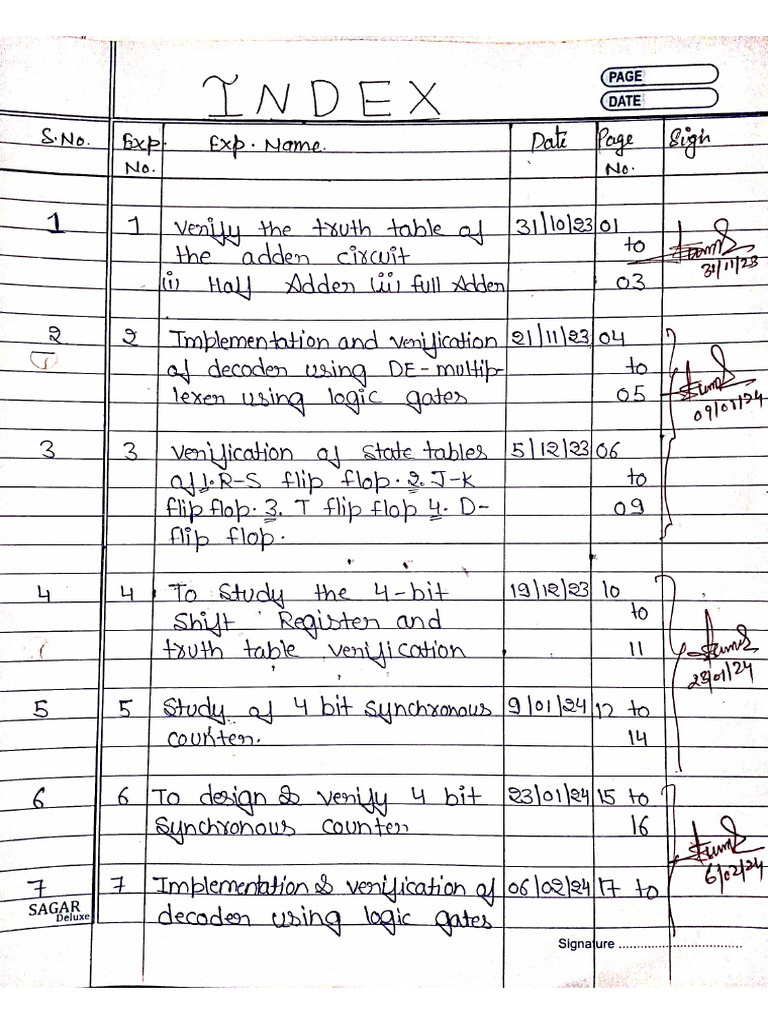 INDEX
PAGE
DATE
S.No. Exp. Exp. Name. Date Page Sign
No. No.
1 1 Verify the truth table of 31/10/23 01
the adder circuit to
(i) Half Adder (ii) full Adder 03
31/11/23
2 2 Implementation and verification 21/11/23 04
of decoder using DE-multip- to
lexer using logic gates 05
09/01/24
3 3 Verification of state tables 5/12/23 06
of 1. R-S flip flop. 2. J-K to
flip flop. 3. T flip flop 4. D- 09
flip flop.
4 4 To Study the 4-bit 19/12/23 10
Shift Register and to
truth table verification 11
23/01/24
5 5 Study of 4 bit synchronous 9/01/24 12 to
counter. 14
6 6 To design & verify 4 bit 23/01/24 15 to
Synchronous counter 16
6/02/24
7 7 Implementation & verification of 06/02/24 17 to
decoder using logic gates
SAGAR
Deluxe
Signature ................................